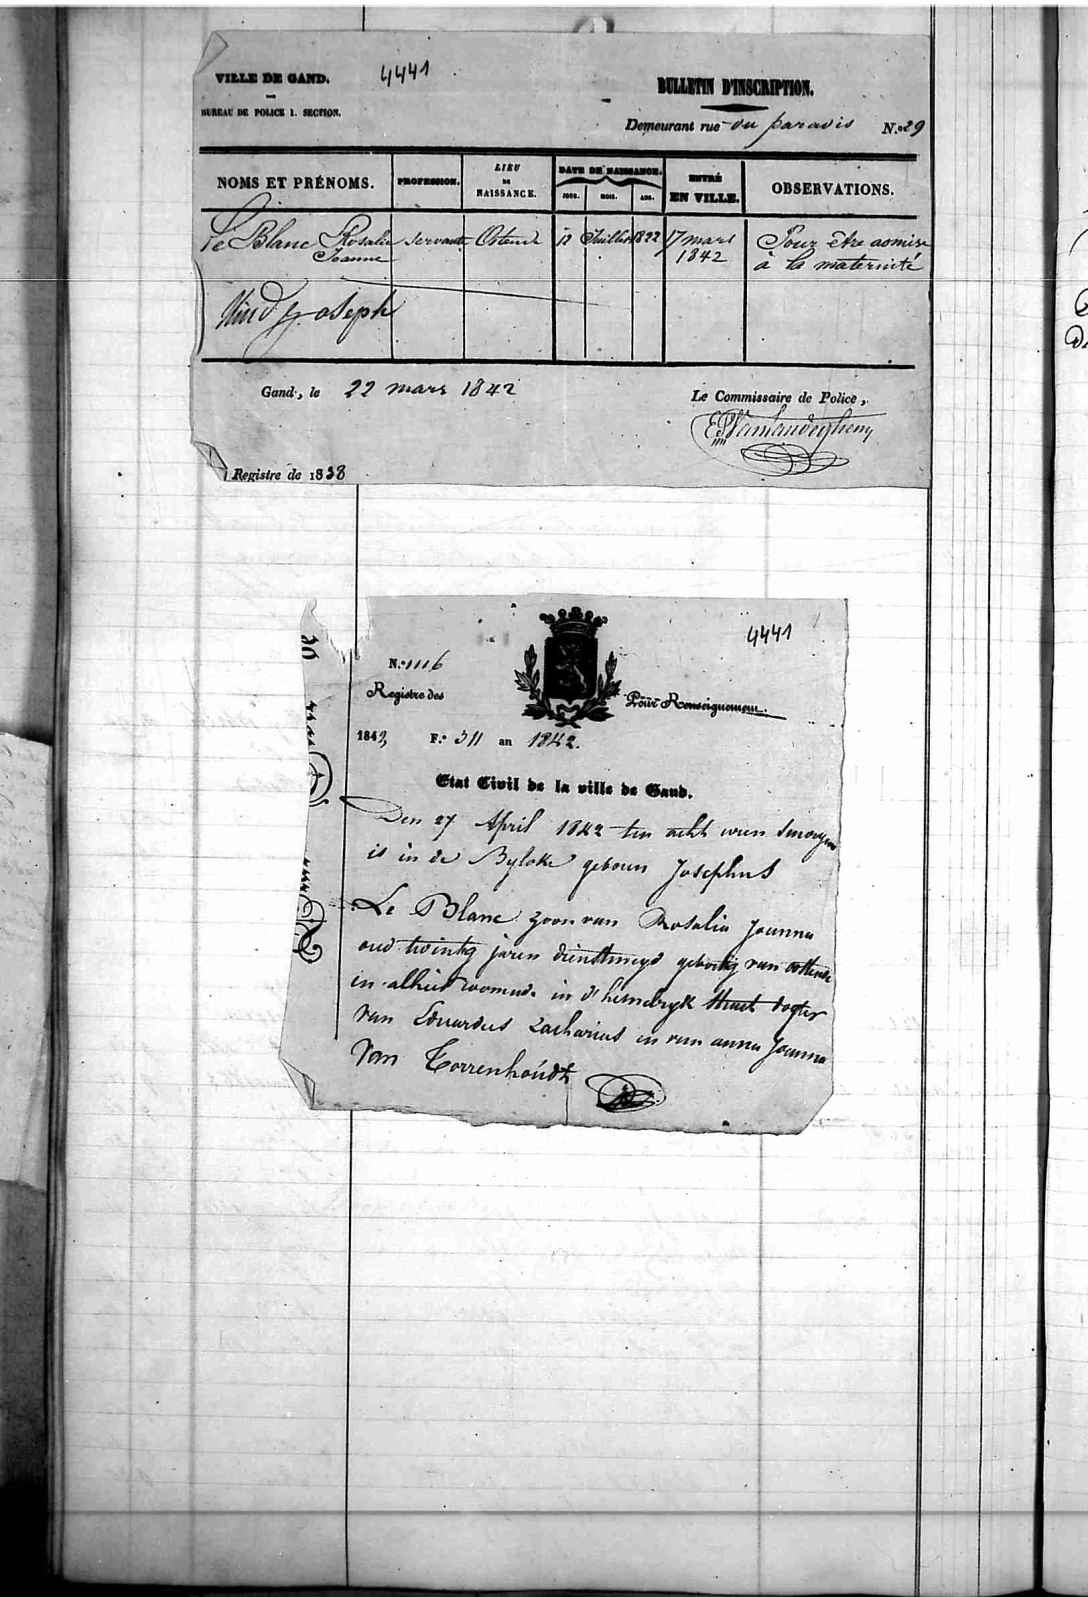 VILLE DE GAND.
4441
BUREAU DE POLICE 1. SECTION.
BULLETIN D'INSCRIPTION.
Demeurant rue du paradis N.o 29
NOMS ET PRÉNOMS.
PROFESSION.
LIEU DE NAISSANCE.
DATE DE NAISSANCE.
JOUR. MOIS. ANS.
ENTRÉ EN VILLE.
OBSERVATIONS.
Le Blanc Rosalie servante Ostende 12 Juillet 1822 17 mars Pour être admise
Jeanne 1842 à la maternité
Kind Joseph
Gand, le 22 mars 1842
Le Commissaire de Police,
Registre de 1838
4441
N.o 1116
Registre des
Pour Renseignement.
1842, F.o 311 an 1842.
Etat Civil de la ville de Gand.
Den 27 April 1842 ten acht uren smorgens
is in de Byloke geboren Josephus
Le Blanc zoon van Rosalia Joanna
oud twintig jaren dienstmeyd geboortig van ostende
en alhier woonende in d' hemelryk straet dogter
van Eduardus Zacharius en van anna Joanna
Van Torrenhoudt